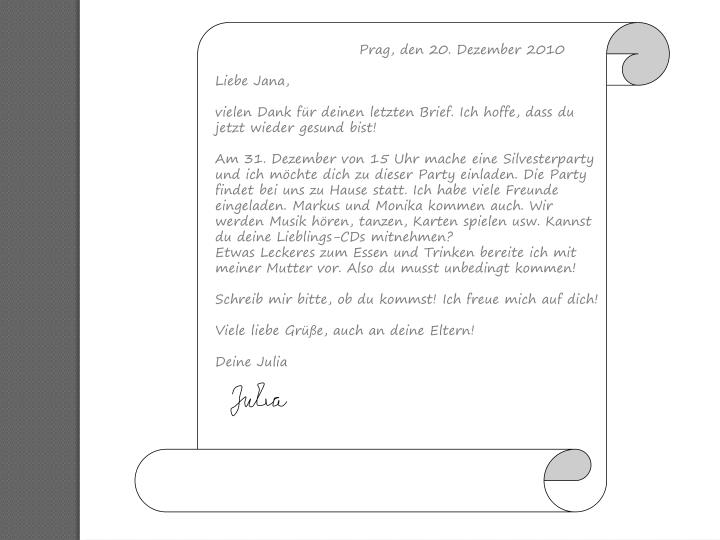 Prag, den 20. Dezember 2010
Liebe Jana,
vielen Dank für deinen letzten Brief. Ich hoffe, dass du
jetzt wieder gesund bist!
Am 31. Dezember von 15 Uhr mache eine Silvesterparty
und ich möchte dich zu dieser Party einladen. Die Party
findet bei uns zu Hause statt. Ich habe viele Freunde
eingeladen. Markus und Monika kommen auch. Wir
werden Musik hören, tanzen, Karten spielen usw. Kannst
du deine Lieblings-CDs mitnehmen?
Etwas Leckeres zum Essen und Trinken bereite ich mit
meiner Mutter vor. Also du musst unbedingt kommen!
Schreib mir bitte, ob du kommst! Ich freue mich auf dich!
Viele liebe Grüße, auch an deine Eltern!
Deine Julia
Julia